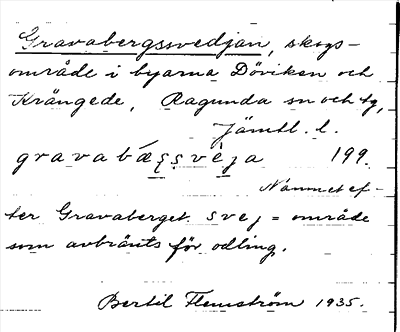 Gravabergssvedjan, skogs-
område i byarna Döviken och
Krångede, Ragunda sn och tg,
Jämtl. l.
gravabæʒṣvèja 199.
Namnet ef-
ter Gravaberget. svej = område
som avbränts för odling.
Bertil Flemström 1935.